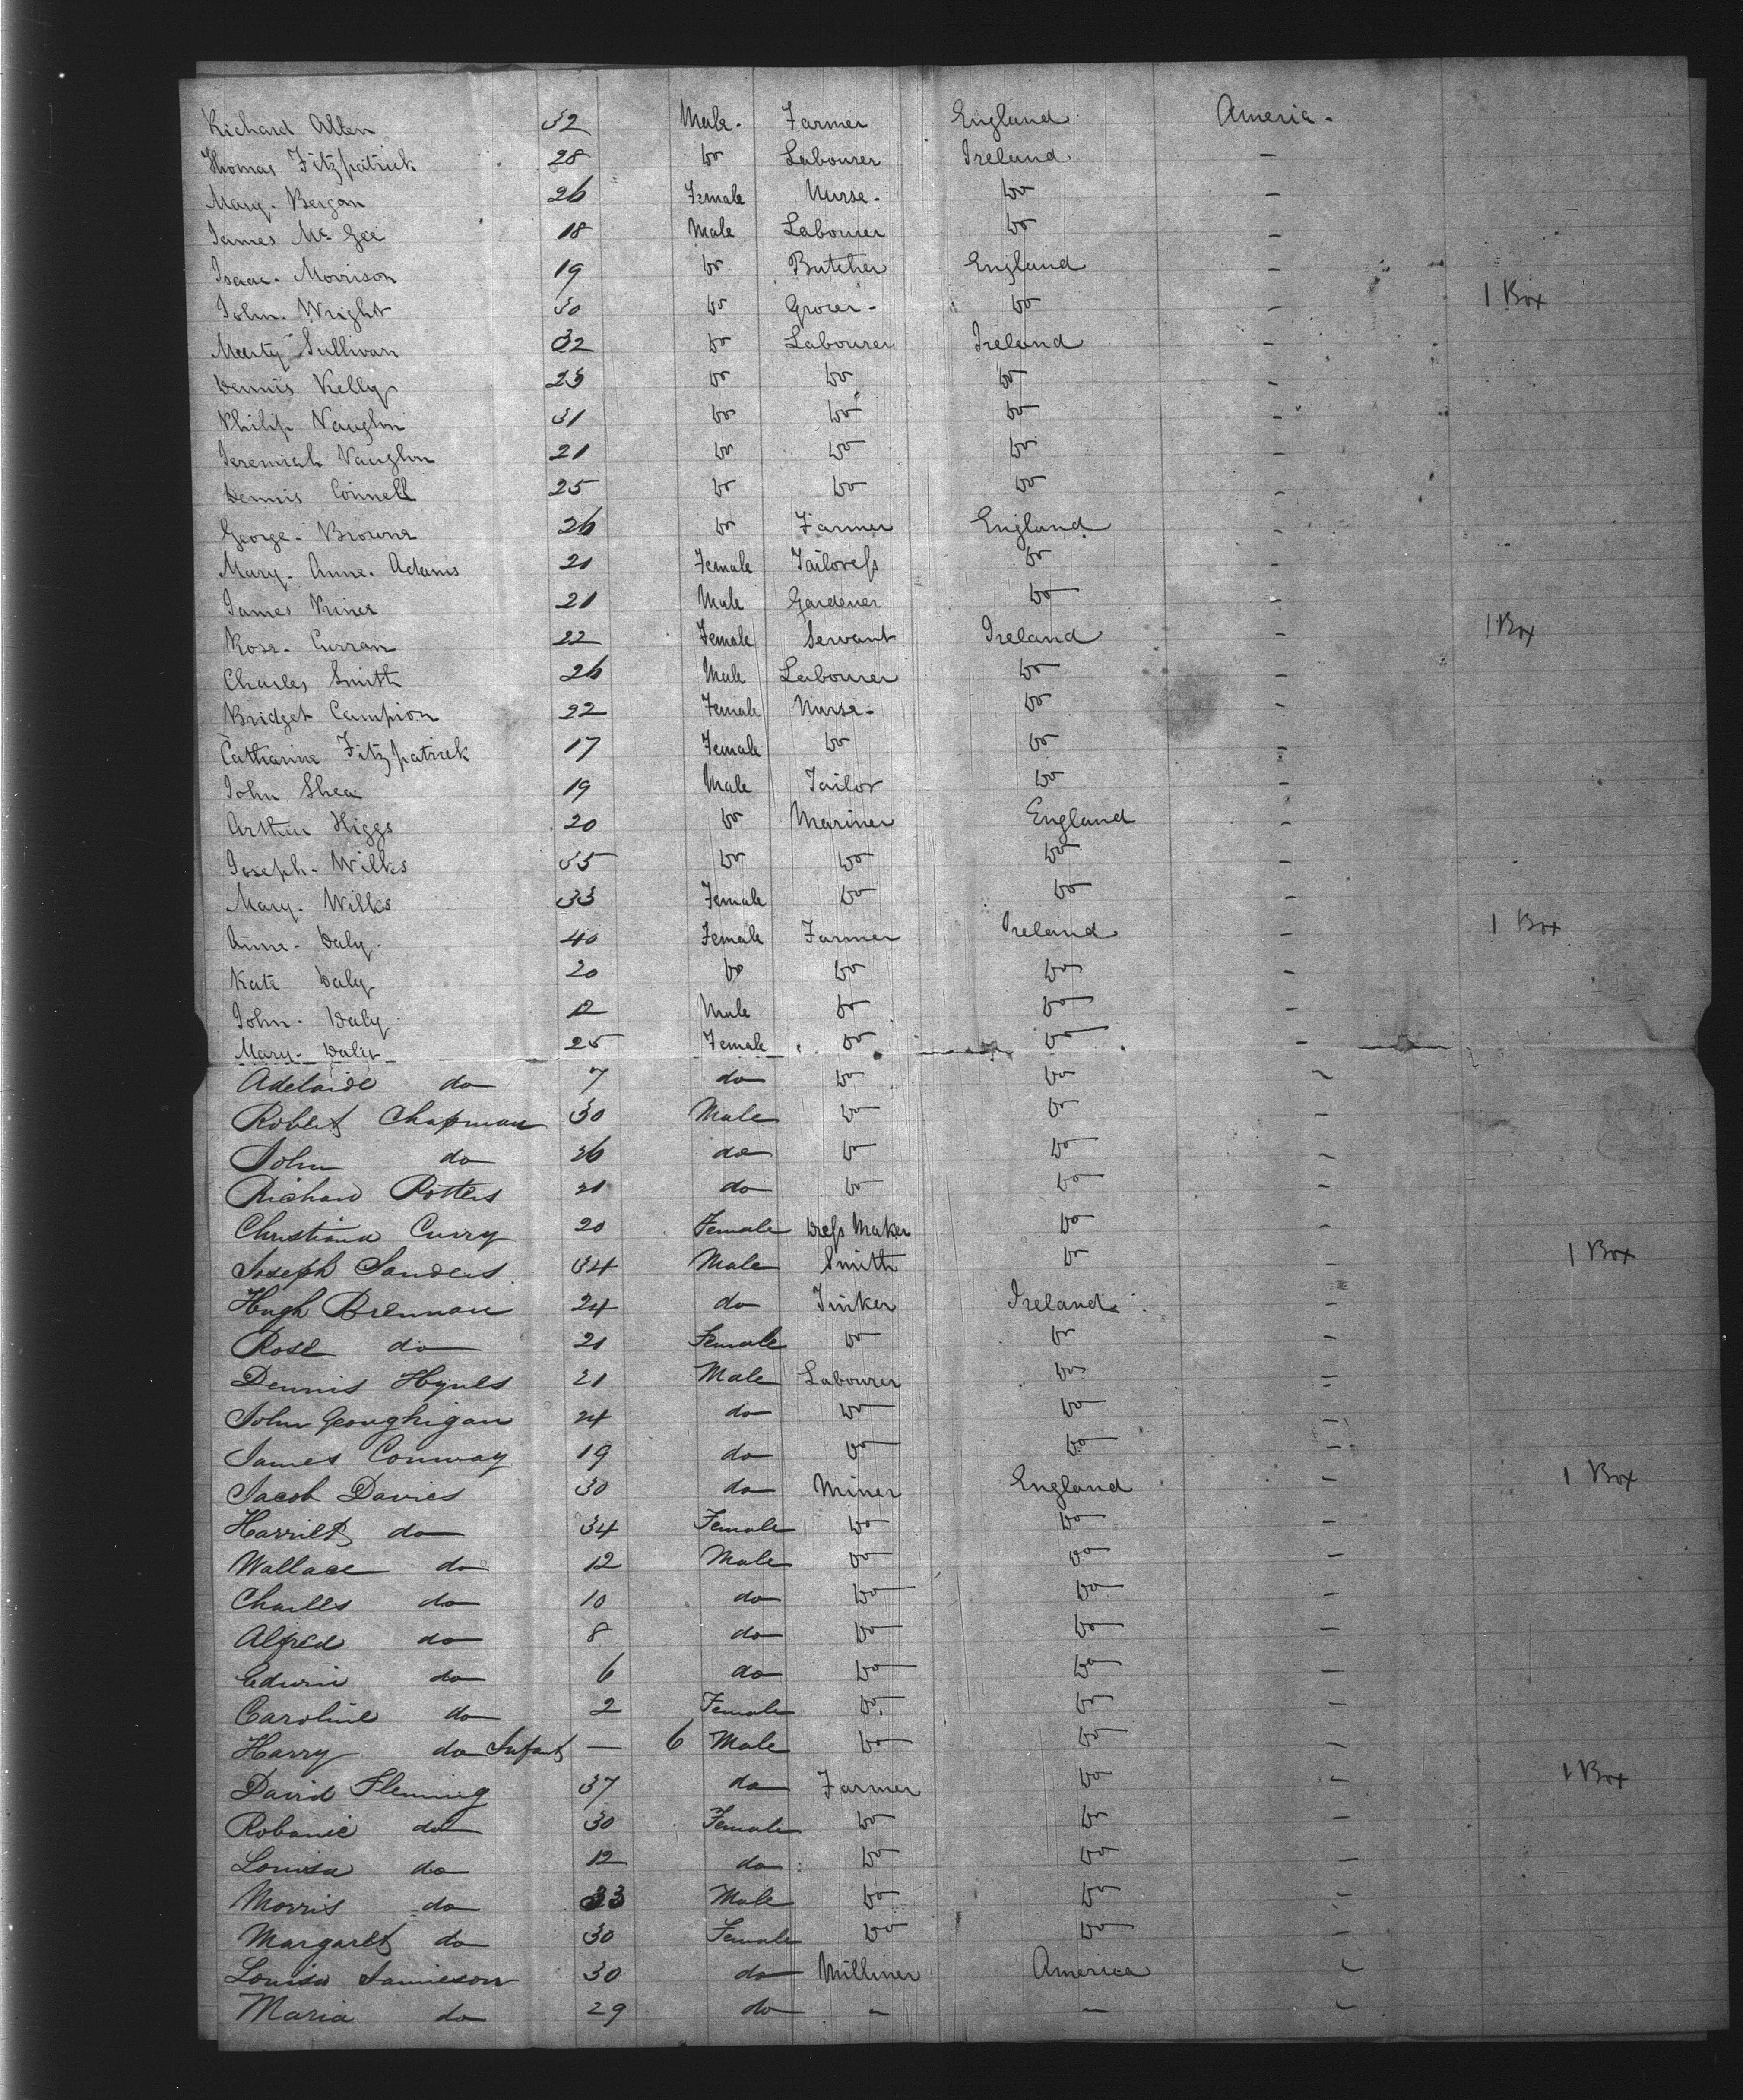 Richard Allen 32 Male. Farmer England America.
Thomas Fitzpatrick 28 Do Labourer Ireland —
Mary. Bergan 26 Female Nurse. Do —
James Mc Gee 18 Male Labourer Do —
Isaac. Morrison 19 Do Butcher England —
John. Wright 30 Do Grocer - Do — 1 Box
Murty Sullivan 32 Do Labourer Ireland —
Dennis Kelly 23 Do Do Do —
Philip Vaughn 31 Do Do Do —
Jeremiah Vaughn 21 Do Do Do —
Dennis Connell 25 Do Do Do —
George. Browne 26 Do Farmer England —
Mary. Anne. Adams 21 Female Tailoress Do —
James Viner 21 Male Gardener Do —
Rose. Curran 22 Female Servant Ireland — 1 Box
Charles Smith 26 Male Labourer Do —
Bridget Campion 22 Female Nurse - Do —
Catharine Fitzpatrick 17 Female Do Do —
John Shea 19 Male Tailor Do —
Arthur Higgs 20 Do Mariner England —
Joseph. Wilks 35 Do Do Do —
Mary. Wilks 33 Female Do Do —
Anne. Daly. 40 Female Farmer Ireland — 1 Box
Kate Daly 20 Do Do Do —
John. Daly 12 Male Do Do —
Mary. Daly 25 Female Do Do —
Adelaide do 7 do Do Do —
Robert Chapman 30 Male Do Do —
John do 26 do Do Do —
Richard Potters 21 do Do Do —
Christiana Curry 20 Female Dress Maker Do —
Joseph Sanders 34 Male Smith Do — 1 Box
Hugh Brennan 24 do Tinker Ireland —
Rose do 21 Female Do Do —
Dennis Hynes 21 Male Labourer Do —
John Geoughigan 24 do Do Do —
James Conway 19 do Do Do —
Jacob Davies 30 do Miner England — 1 Box
Harriet do 34 Female Do Do —
Wallace do 12 Male Do Do —
Charles do 10 do Do Do —
Alfred do 8 do Do Do —
Edwin do 6 do Do Do —
Caroline do 2 Female Do Do —
Harry do Infant — 6 Male Do Do —
David Fleming 37 do Farmer Do — 1 Box
Robanie do 30 Female Do Do —
Louisa do 12 do Do Do —
Morris do 33 Male Do Do —
Margaret do 30 Female Do Do —
Louisa Jamieson 30 do Milliner America —
Maria do 29 do — — —